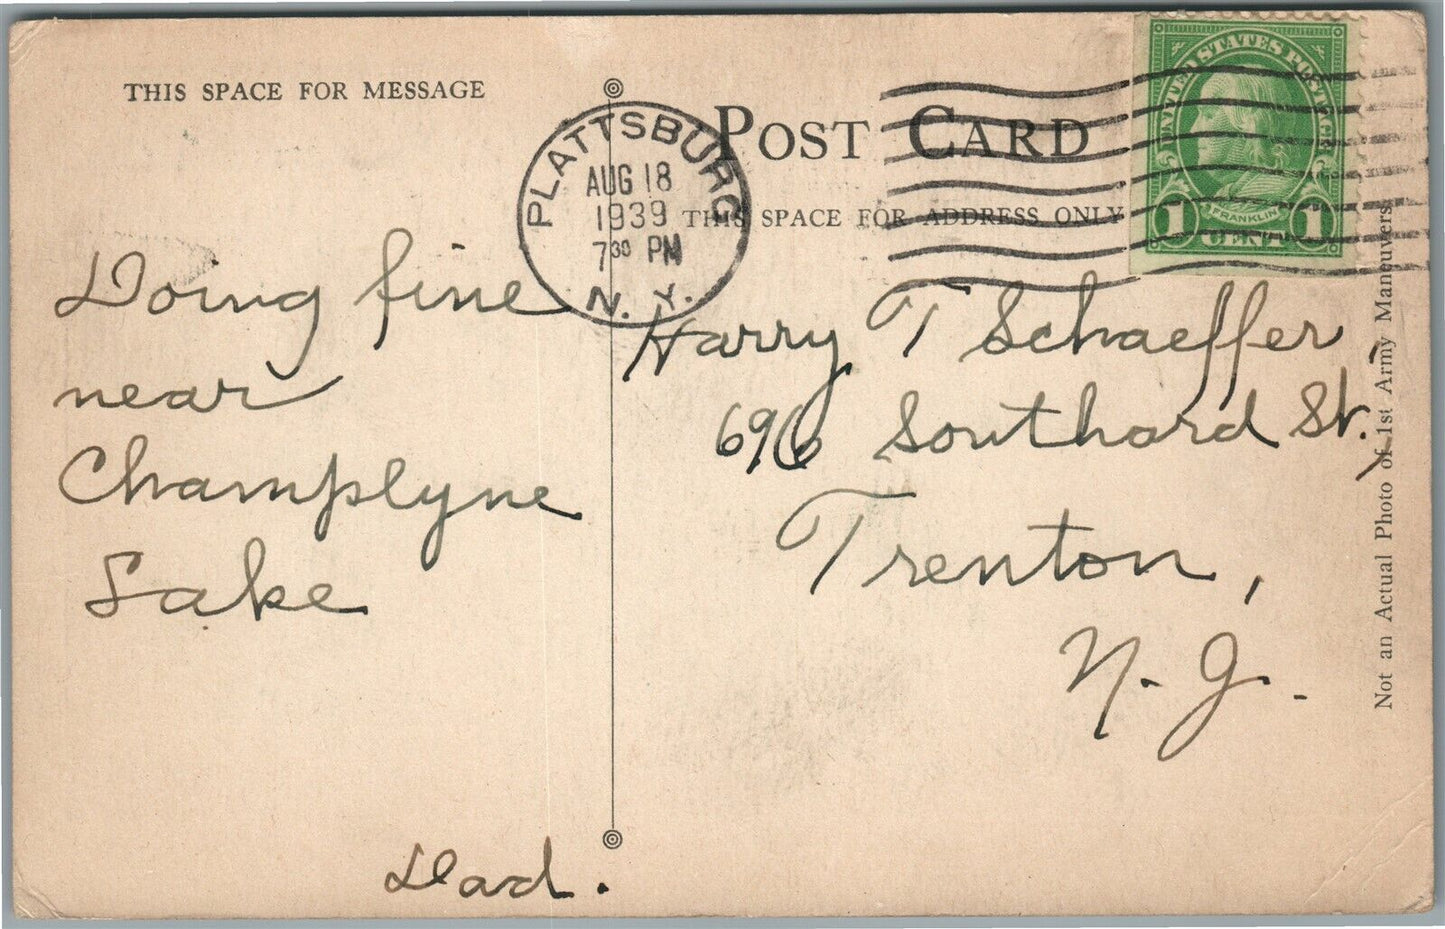 THIS SPACE FOR MESSAGE
Doing fine
near
Champlyne
Lake
Dad.
PLATTSBURG
AUG 18
1939
7 30 PM
N. Y.
POST CARD
THIS SPACE FOR ADDRESS ONLY
UNITED STATES POSTAGE
FRANKLIN
1 CENT 1
Harry T Schaeffer,
696 Southard St.,
Trenton,
N. J.
Not an Actual Photo of 1st Army Maneuvers